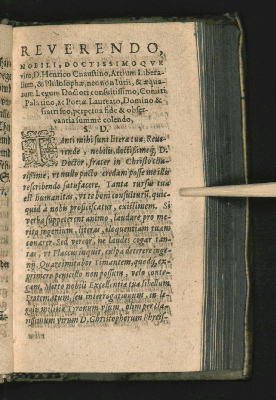 REVERENDO,
NOBILI, DOCTISSIMOQVE
viro, D. Henrico Cnaustino, Artium Libera-
lium, & Philosophiæ, nec non Iuris, & æqua-
rum Legum Doctori consultissimo, Comiti
Palatino, ac Poetæ Laureato, Domino &
fratri suo, perpetua fide & obser-
vantia summè colendo,
S. D.
TAnti mihi sunt literæ tuæ, Reve-
rende, nobilis, doctissimeq; D.
Doctor, frater in Christo cha-
rissime, ut nullo pacto credam posse me illis
rescribendo satisfacere. Tanta rursus tua
est humanitas, ut te boni consulturum, quic-
quid à nobis proficiscatur, existimem. Si
verba suppeterent animo, laudare pro me-
rito ingenium, literas, eloquentiam tuam
conarer. Sed vereor, ne laudes cogar tan-
tas, ut Flaccus inquit, culpa deterere inge-
nij. Quare imitabor Timantem, quodq; ex-
primere penicillo non possum, velo conte-
gam. Mitto nobili Excellentiæ tuæ libellum
Erotematum, seu interrogationum, in le-
galis militiæ Tyronum usum, olim per cla-
rissimum virum D. Christophorum